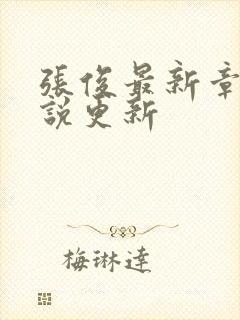 張俊最新章
說更新
梅琳達